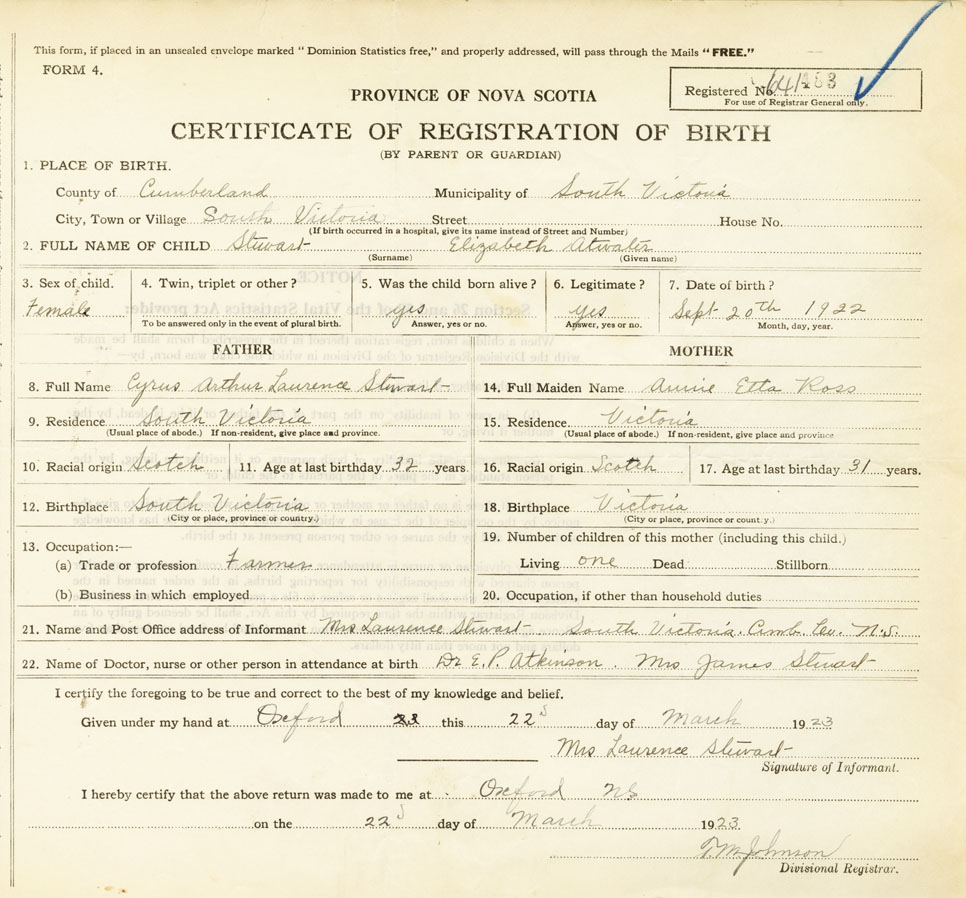 This form, if placed in an unsealed envelope marked "Dominion Statistics free," and properly addressed, will pass through the Mails "FREE."
FORM 4.
Registered No. 641483
For use of Registrar General only.
PROVINCE OF NOVA SCOTIA
CERTIFICATE OF REGISTRATION OF BIRTH
(BY PARENT OR GUARDIAN)
1. PLACE OF BIRTH.
County of Cumberland Municipality of South Victoria
City, Town or Village South Victoria Street House No.
(If birth occurred in a hospital, give its name instead of Street and Number)
2. FULL NAME OF CHILD Stewart Elizabeth Atwater
(Surname) (Given name)
3. Sex of child. 4. Twin, triplet or other? 5. Was the child born alive? 6. Legitimate? 7. Date of birth?
Female yes yes Sept 20th 1922
To be answered only in the event of plural birth. Answer, yes or no. Answer, yes or no. Month, day, year.
FATHER MOTHER
8. Full Name Cyrus Arthur Laurence Stewart 14. Full Maiden Name Annie Etta Ross
9. Residence South Victoria 15. Residence Victoria
(Usual place of abode.) If non-resident, give place and province. (Usual place of abode.) If non-resident, give place and province
10. Racial origin Scotch 11. Age at last birthday 32 years. 16. Racial origin Scotch 17. Age at last birthday 31 years.
12. Birthplace South Victoria 18. Birthplace Victoria
(City or place, province or country.) (City or place, province or country.)
13. Occupation:— 19. Number of children of this mother (including this child.)
(a) Trade or profession Farmer Living one Dead Stillborn
(b) Business in which employed 20. Occupation, if other than household duties
21. Name and Post Office address of Informant Mrs Laurence Stewart South Victoria. Cumb. Co. N.S.
22. Name of Doctor, nurse or other person in attendance at birth Dr E.P. Atkinson. Mrs James Stewart
I certify the foregoing to be true and correct to the best of my knowledge and belief.
Given under my hand at Oxford this 22 day of March 1923
Mrs Laurence Stewart
Signature of Informant.
I hereby certify that the above return was made to me at Oxford NS
on the 22 day of March 1923
Johnson
Divisional Registrar.